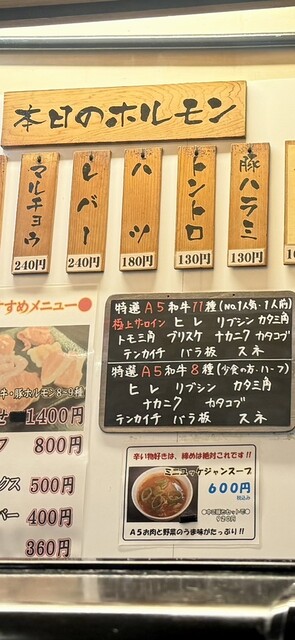 本日のホルモン
マルチョウ
240円
レバー
240円
ハツ
180円
トントロ
130円
豚ハラミ
130円
すすめメニュー
牛・豚ホルモン8~9種
1400円
800円
500円
400円
360円
特選A5和牛11種(No.1人気・1人前)
極上サーロイン ヒレ リブシン カタ三角
トモ三角 ブリスケ ナカニク カタコブ
テンカイチ バラ板 スネ
特選A5和牛8種(少食の方・ハーフ)
ヒレ リブシン カタ三角
ナカニク カタコブ
テンカイチ バラ板 スネ
辛い物好きは、締めは絶対これです!!
ミニユッケジャンスープ
600円
税込み
A5お肉と野菜のうま味がたっぷり!!